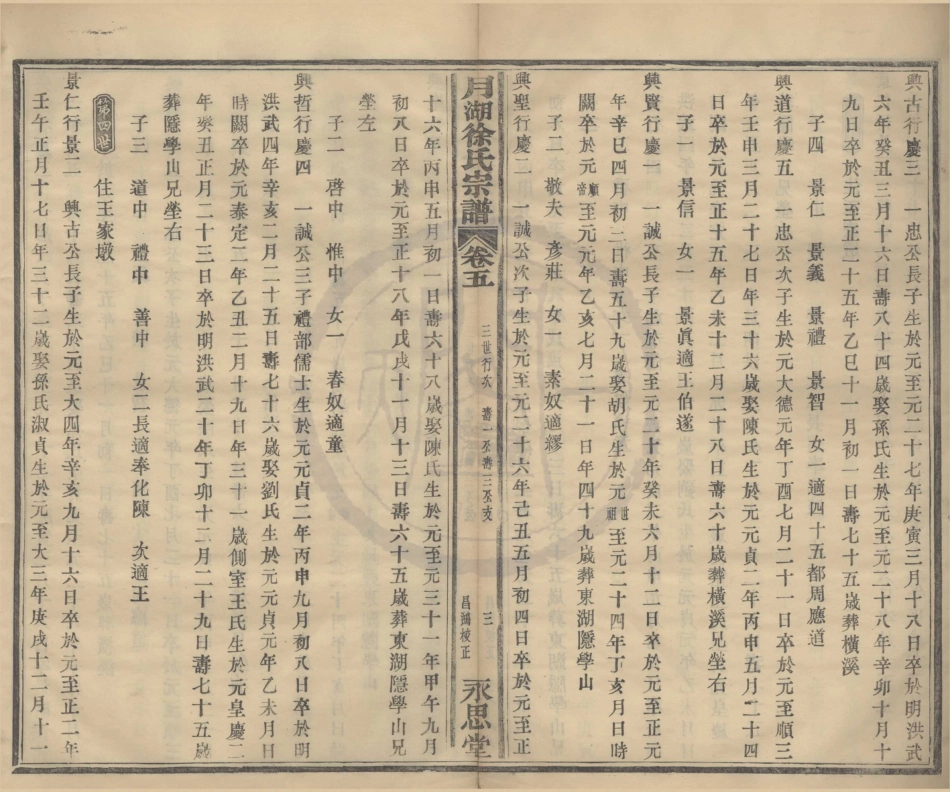 興古行慶三　一忠公長子生於元至元二十七年庚寅三月十八日卒於明洪武
六年癸丑三月十六日壽八十四歲娶孫氏生於元至元二十八年辛卯十月十
九日卒於元至正二十五年乙巳十一月初一日壽七十五歲葬橫溪
子四　景仁　景義　景禮　景智　女一適四十五都周應道
興道行慶五　一忠公次子生於元大德元年丁酉七月二十一日卒於元至順三
年壬申三月二十七日年三十六歲娶陳氏生於元元貞二年丙申五月二十四
日卒於元至正十五年乙未十二月二十八日壽六十歲葬橫溪兄塋右
子一　景信　女一　景眞適王伯遂
興賢行慶一　一誠公長子生於元至元二十年癸未六月十二日卒於元至正元
年辛巳四月初三日壽五十九歲娶胡氏生於元世祖至元二十四年丁亥月日時
闕卒於元順帝至元元年乙亥七月二十一日年四十九歲葬東湖隱學山
子二　敬夫　彥莊　女一　素奴適繆
興聖行慶二　一誠公次子生於元至元二十六年己丑五月初四日卒於元至正
月湖徐氏宗譜　卷五　三世行次　壽一至壽三至支　三　昌鴻校正　永思堂
十六年丙申五月初一日壽六十八歲娶陳氏生於元至元三十一年甲午九月
初八日卒於元至正十八年戊戌十一月十三日壽六十五歲葬東湖隱學山兄
塋左
子二　啓中　惟中　女一　春奴適童
興哲行慶四　一誠公三子禮部儒士生於元元貞二年丙申九月初八日卒於明
洪武四年辛亥二月二十五日壽七十六歲娶劉氏生於元元貞元年乙未月日
時闕卒於元泰定二年乙丑二月十九日年三十一歲側室王氏生於元皇慶二
年癸丑正月二十三日卒於明洪武二十年丁卯十二月二十九日壽七十五歲
葬隱學山兄塋右
子三　道中　禮中　善中　女二長適奉化陳　次適王
第四世　住王家墩
景仁行景二　興古公長子生於元至大四年辛亥九月十六日卒於元至正二年
壬午正月十七日年三十二歲娶孫氏淑貞生於元至大三年庚戌十二月十一